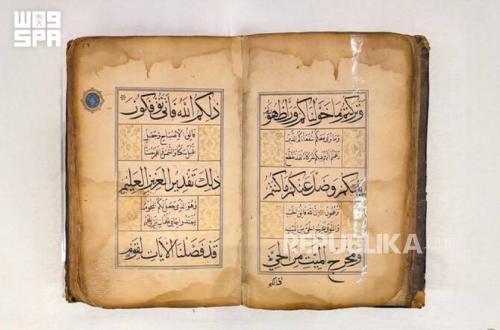 واس
SPA
وتركتم ما خولناكم وراء ظهو
وما نرى معكم شفعاءكم الذين
زعمتم أنهم فيكم شركاء لقد تقطع
بينكم وضل عنكم ما كنتم
تزعمون إن الله فالق الحب
ومخرج الميت من الحي
ذلكم
ذلكم الله فأنى تؤفكون
فالق الإصباح وجعل
الليل سكنا والشمس والقمر حسبانا
ذلك تقدير العزيز العليم
وهو الذي جعل لكم النجوم
لتهتدوا بها في ظلمات البر والبحر
قد فصلنا الآيات لقوم
REPUBLIKA